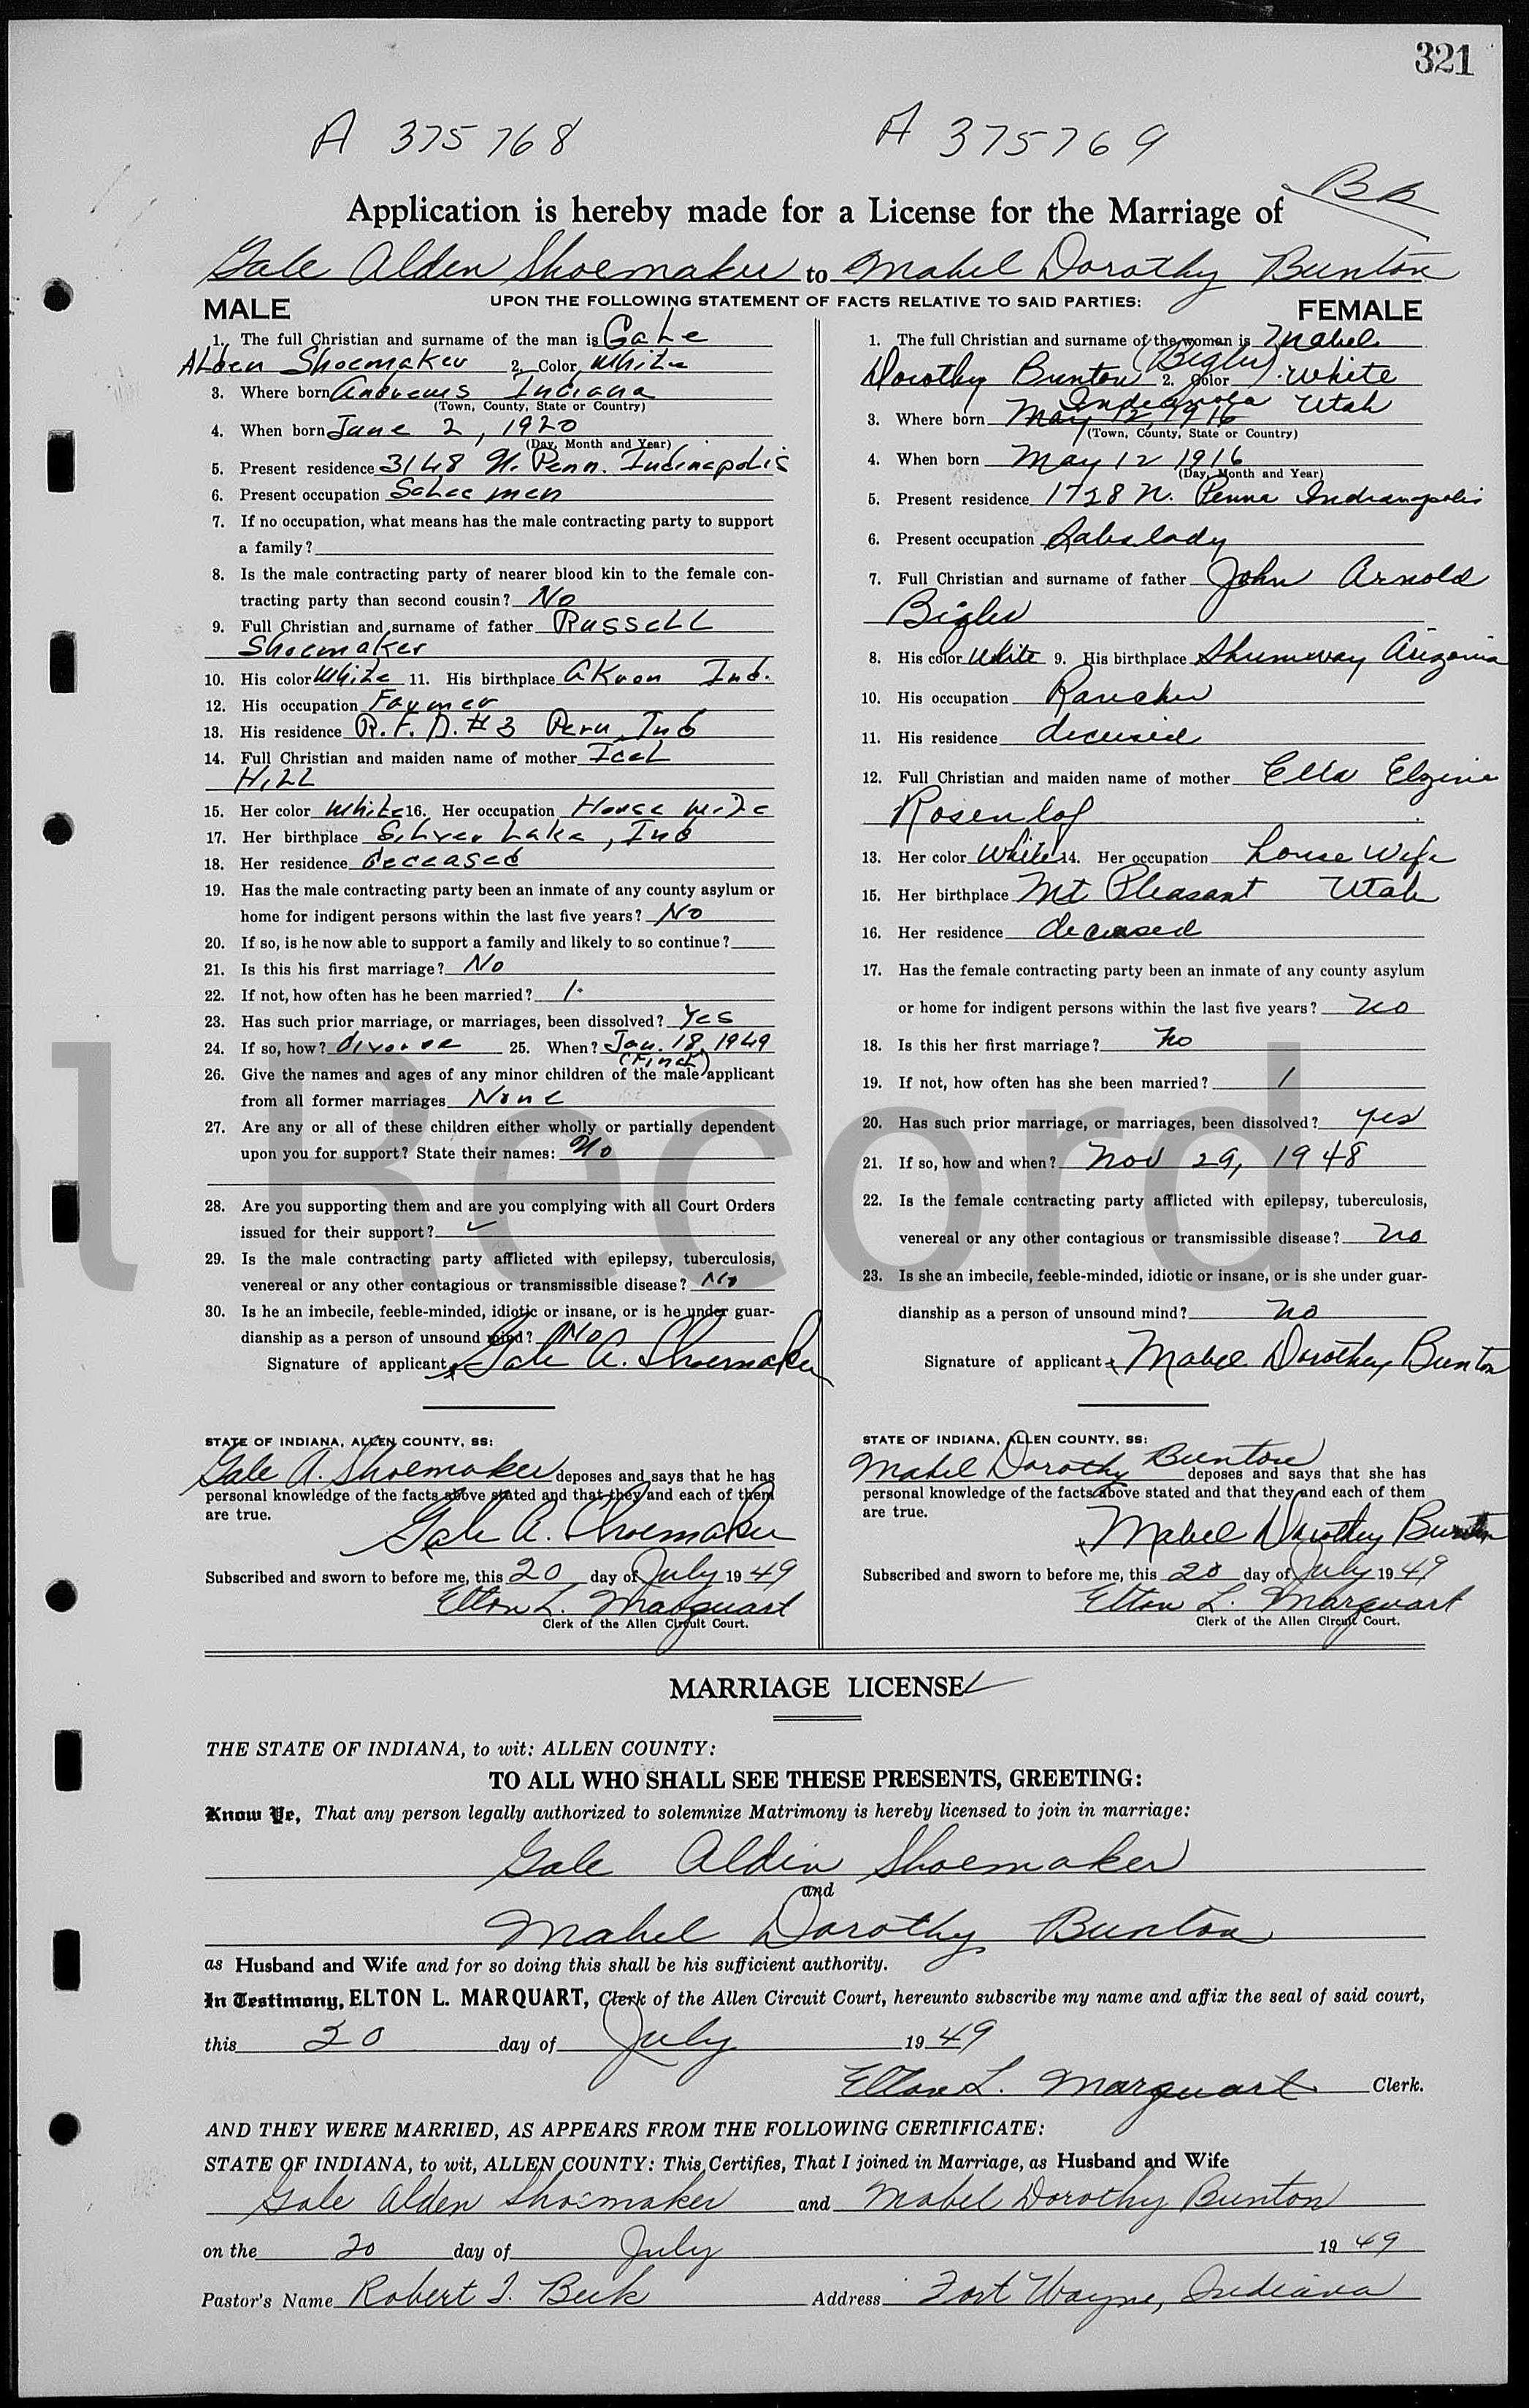 321
A 375768 A 375769
BB
Application is hereby made for a License for the Marriage of
Gale Alden Shoemaker to Mabel Dorothy Bunton
UPON THE FOLLOWING STATEMENT OF FACTS RELATIVE TO SAID PARTIES:
MALE
1. The full Christian and surname of the man is Gale
Alden Shoemaker 2. Color White
3. Where born Andrews Indiana
(Town, County, State or Country)
4. When born June 2, 1920
(Day, Month and Year)
5. Present residence 3148 N. Penn. Indinapolis
6. Present occupation Salesmen
7. If no occupation, what means has the male contracting party to support
a family?
8. Is the male contracting party of nearer blood kin to the female con-
tracting party than second cousin? No
9. Full Christian and surname of father Russell
Shoemaker
10. His color White 11. His birthplace Akron Ind.
12. His occupation Farmer
13. His residence R.F.D. #3 Peru, Ind
14. Full Christian and maiden name of mother Icel
Hill
15. Her color White 16. Her occupation House Wife
17. Her birthplace Silver Lake, Ind
18. Her residence deceased
19. Has the male contracting party been an inmate of any county asylum or
home for indigent persons within the last five years? No
20. If so, is he now able to support a family and likely to so continue?
21. Is this his first marriage? No
22. If not, how often has he been married? 1.
23. Has such prior marriage, or marriages, been dissolved? Yes
24. If so, how? divorce 25. When? Jan. 18, 1949
(Final)
26. Give the names and ages of any minor children of the male applicant
from all former marriages None
27. Are any or all of these children either wholly or partially dependent
upon you for support? State their names: No
28. Are you supporting them and are you complying with all Court Orders
issued for their support? ✓
29. Is the male contracting party afflicted with epilepsy, tuberculosis,
venereal or any other contagious or transmissible disease? No
30. Is he an imbecile, feeble-minded, idiotic or insane, or is he under guar-
dianship as a person of unsound mind? No
Signature of applicant x Gale A. Shoemaker
STATE OF INDIANA, ALLEN COUNTY, SS:
Gale A. Shoemaker deposes and says that he has
personal knowledge of the facts above stated and that they and each of them
are true.
Gale A. Shoemaker
Subscribed and sworn to before me, this 20 day of July 1949
Elton L. Marquart
Clerk of the Allen Circuit Court.
FEMALE
1. The full Christian and surname of the woman is Mabel
Dorothy Bunton (Bigler) 2. Color White
3. Where born May 12 1916 Indianola Utah
(Town, County, State or Country)
4. When born May 12 1916
(Day, Month and Year)
5. Present residence 1728 N. Penna Indianapolis
6. Present occupation Saleslady
7. Full Christian and surname of father John Arnold
Bigler
8. His color White 9. His birthplace Shumway Arizonia
10. His occupation Rancher
11. His residence deceised
12. Full Christian and maiden name of mother Ella Elzina
Rosenlof
13. Her color White 14. Her occupation house wife
15. Her birthplace Mt Pleasant Utah
16. Her residence deceased
17. Has the female contracting party been an inmate of any county asylum
or home for indigent persons within the last five years? no
18. Is this her first marriage? no
19. If not, how often has she been married? 1
20. Has such prior marriage, or marriages, been dissolved? yes
21. If so, how and when? Nov 29, 1948
22. Is the female contracting party afflicted with epilepsy, tuberculosis,
venereal or any other contagious or transmissible disease? no
23. Is she an imbecile, feeble-minded, idiotic or insane, or is she under guar-
dianship as a person of unsound mind? no
Signature of applicant x Mabel Dorothy Bunton
STATE OF INDIANA, ALLEN COUNTY, SS:
Mabel Dorothy Bunton deposes and says that she has
personal knowledge of the facts above stated and that they and each of them
are true.
x Mabel Dorothy Bunton
Subscribed and sworn to before me, this 20 day of July 1949
Elton L. Marquart
Clerk of the Allen Circuit Court.
l Record
MARRIAGE LICENSE
THE STATE OF INDIANA, to wit: ALLEN COUNTY:
TO ALL WHO SHALL SEE THESE PRESENTS, GREETING:
Know Ye, That any person legally authorized to solemnize Matrimony is hereby licensed to join in marriage:
Gale Alden Shoemaker
and
Mabel Dorothy Bunton
as Husband and Wife and for so doing this shall be his sufficient authority.
In Testimony, ELTON L. MARQUART, Clerk of the Allen Circuit Court, hereunto subscribe my name and affix the seal of said court,
this 20 day of July 1949
Elton L. Marquart Clerk.
AND THEY WERE MARRIED, AS APPEARS FROM THE FOLLOWING CERTIFICATE:
STATE OF INDIANA, to wit, ALLEN COUNTY: This Certifies, That I joined in Marriage, as Husband and Wife
Gale Alden Shoemaker and Mabel Dorothy Bunton
on the 20 day of July 1949
Pastor's Name Robert J. Beck Address Fort Wayne, Indiana